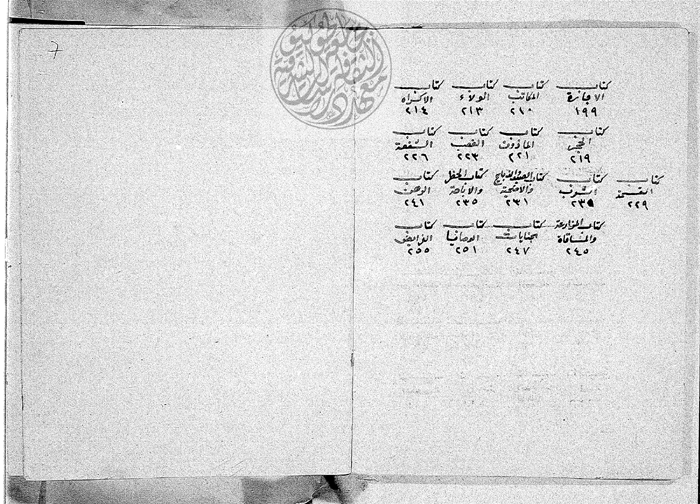 كتاب كتاب كتاب كتاب
الاجازة المكاتب الولاء الاكراه
١٩٩ ٢١٠ ٢١٣ ٢١٤
كتاب كتاب كتاب كتاب
الحجر الماذون الغصب الشفعة
٢١٩ ٢٢١ ٢٢٣ ٢٢٦
كتاب كتاب كتاب الصيد والذبايح كتاب الحظر كتاب
القسمة الشرب والاضحية والاباحة الرهن
٢٢٩ ٢٣١ ٢٣٥ ٢٤١
كتاب المزارعة كتاب كتاب كتاب
والمساقاة الجنايات الوصايا الفرايض
٢٤٥ ٢٤٧ ٢٥١ ٢٥٥